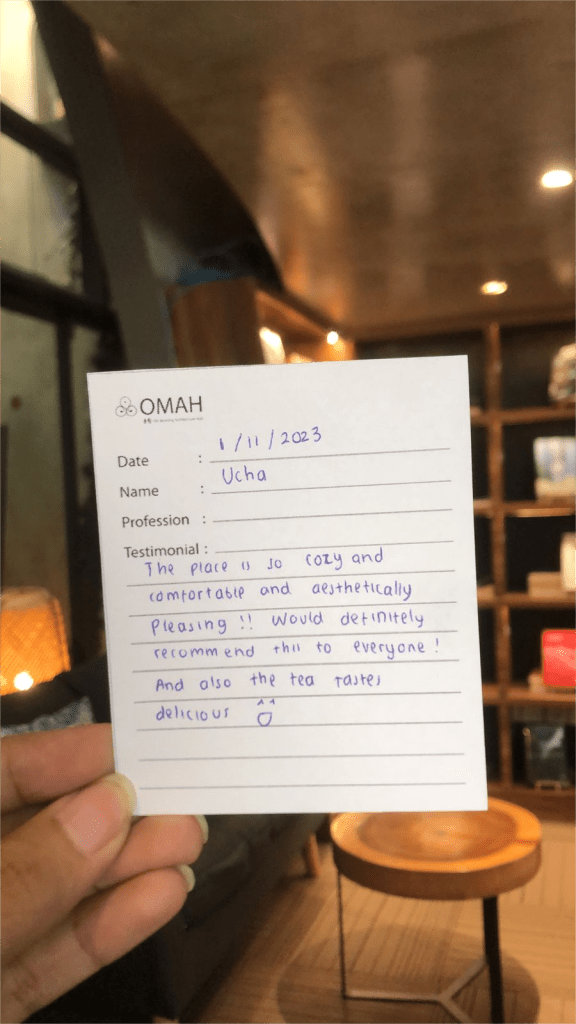 OMAH
Date : 1/11/2023
Name : Ucha
Profession :
Testimonial :
The place is so cozy and
comfortable and aesthetically
pleasing !! Would definitely
recommend this to everyone !
And also the tea tastes
delicious